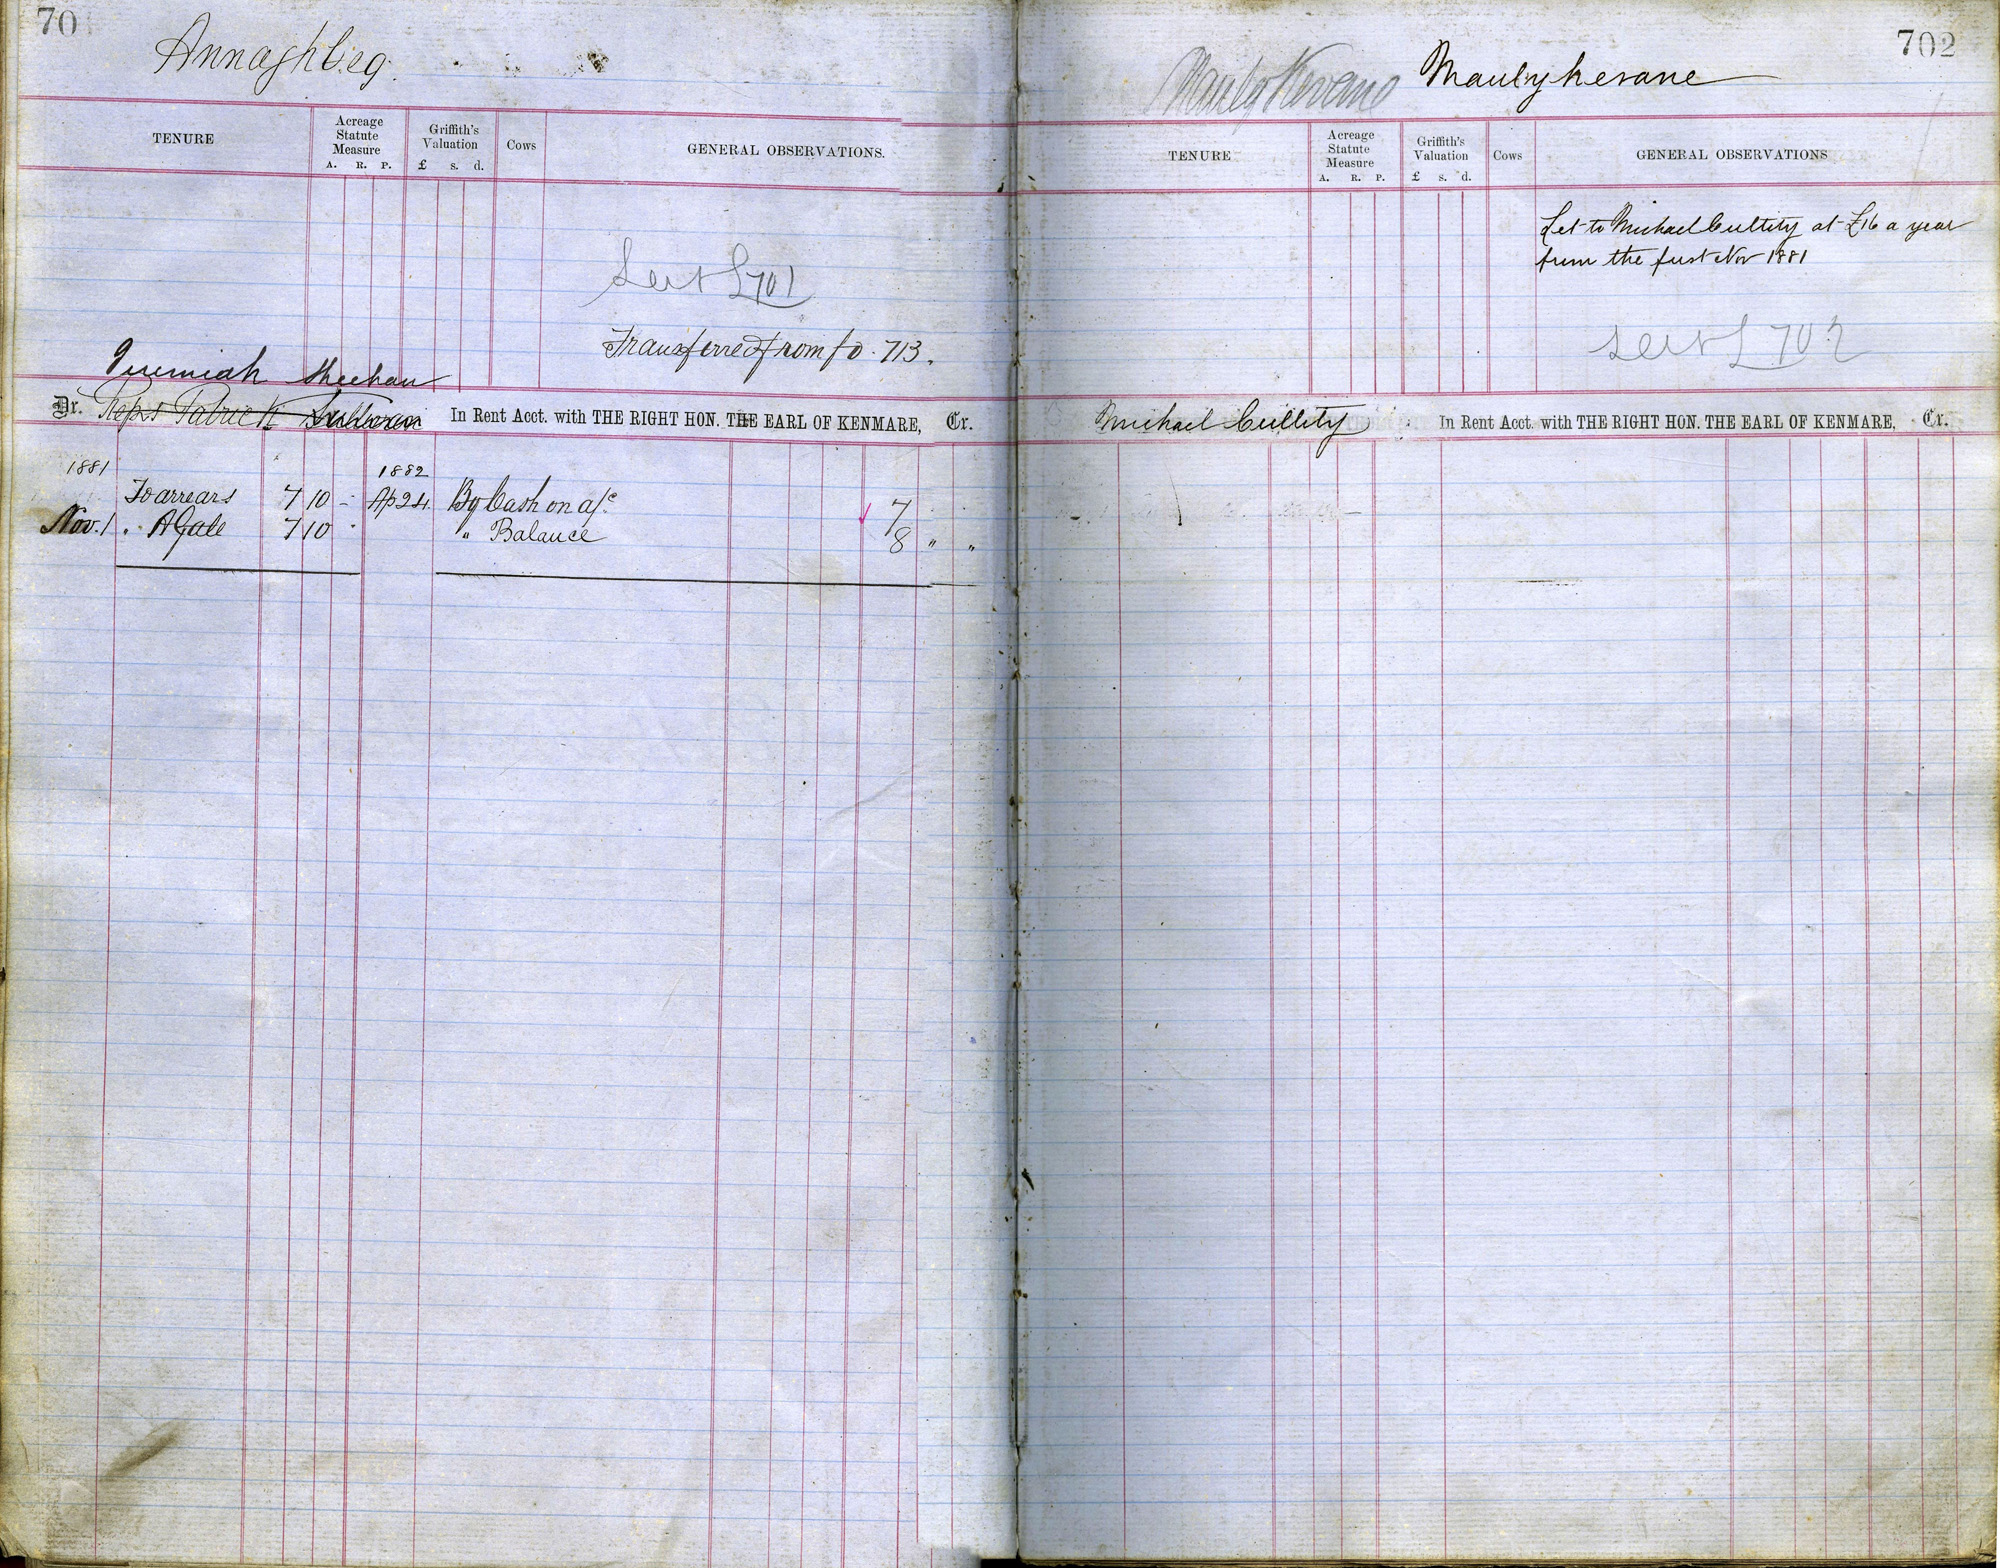 70
Annaghbeg.
TENURE
Acreage Statute Measure
A. R. P.
Griffith's Valuation
£ s. d.
Cows
GENERAL OBSERVATIONS.
L 701
Transferred from fo. 713.
Jeremiah Sheehan
Dr. Reps Patrick Sullivan In Rent Acct. with THE RIGHT HON. THE EARL OF KENMARE, Cr.
1881 1882
To arrears 7 10 - Ap 24 By Cash on a/c 7
Nov. 1 " A Gale 7 10 " " Balance 8 " "
702
Mauly Kevane Maulykevane
TENURE
Acreage Statute Measure
A. R. P.
Griffith's Valuation
£ s. d.
Cows
GENERAL OBSERVATIONS
Let to Michael Cullity at £16 a year
from the first Nov 1881
L 702
Michael Cullity In Rent Acct. with THE RIGHT HON. THE EARL OF KENMARE, Cr.